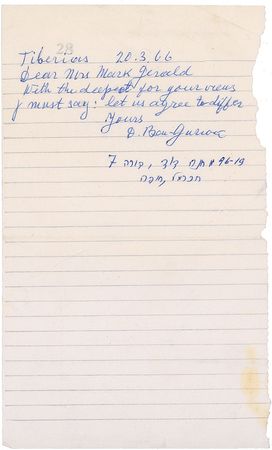 28
Tiberias 20.3.66
Dear Mrs Mark Gerald
With the deepest for your views
I must say: let us agree to differ
Yours
D. Ben-Gurion
7